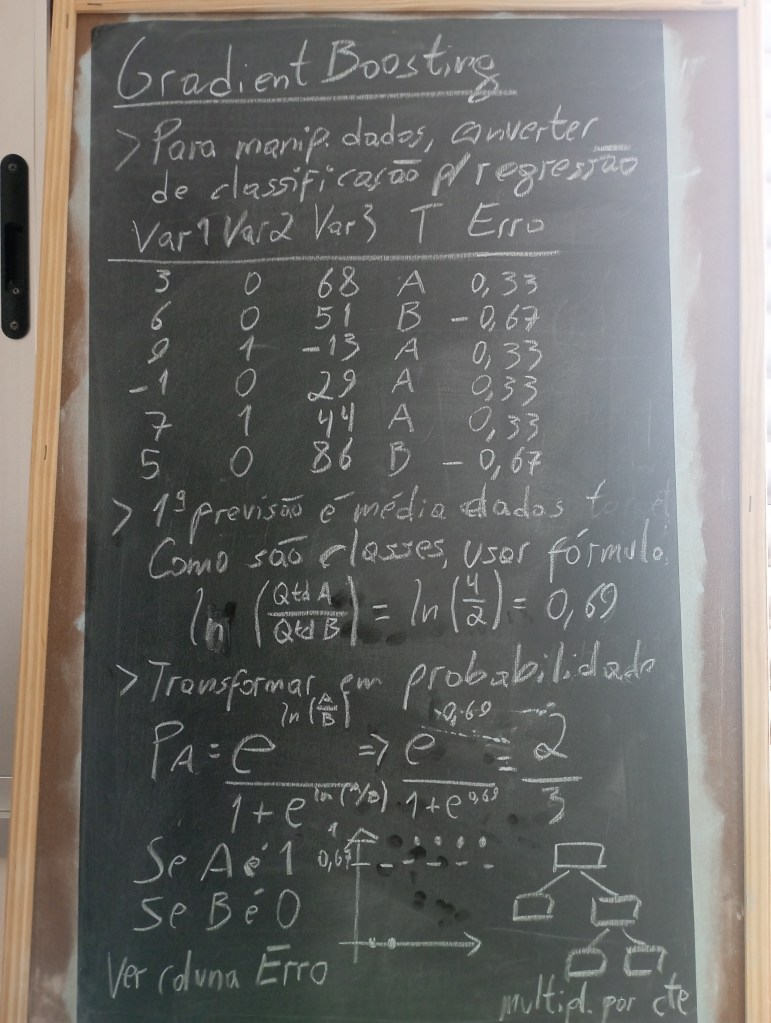 Gradient Boosting
> Para manip. dados, converter
de classificação p/ regressão
Var1 Var2 Var3 T Erro
3 0 68 A 0,33
6 0 51 B -0,67
9 1 -13 A 0,33
-1 0 29 A 0,33
7 1 44 A 0,33
5 0 86 B -0,67
> 1ª previsão é média dados target
Como são classes, usar fórmula
ln (Qtd A / Qtd B) = ln (4/2) = 0,69
> Transformar em probabilidade
PA = e^ln(A/B) / 1+e^ln(A/B) => e^0,69 / 1+e^0,69 = 2/3
Se A é 1
Se B é 0
1
0,67
Ver coluna Erro
multipl. por cte